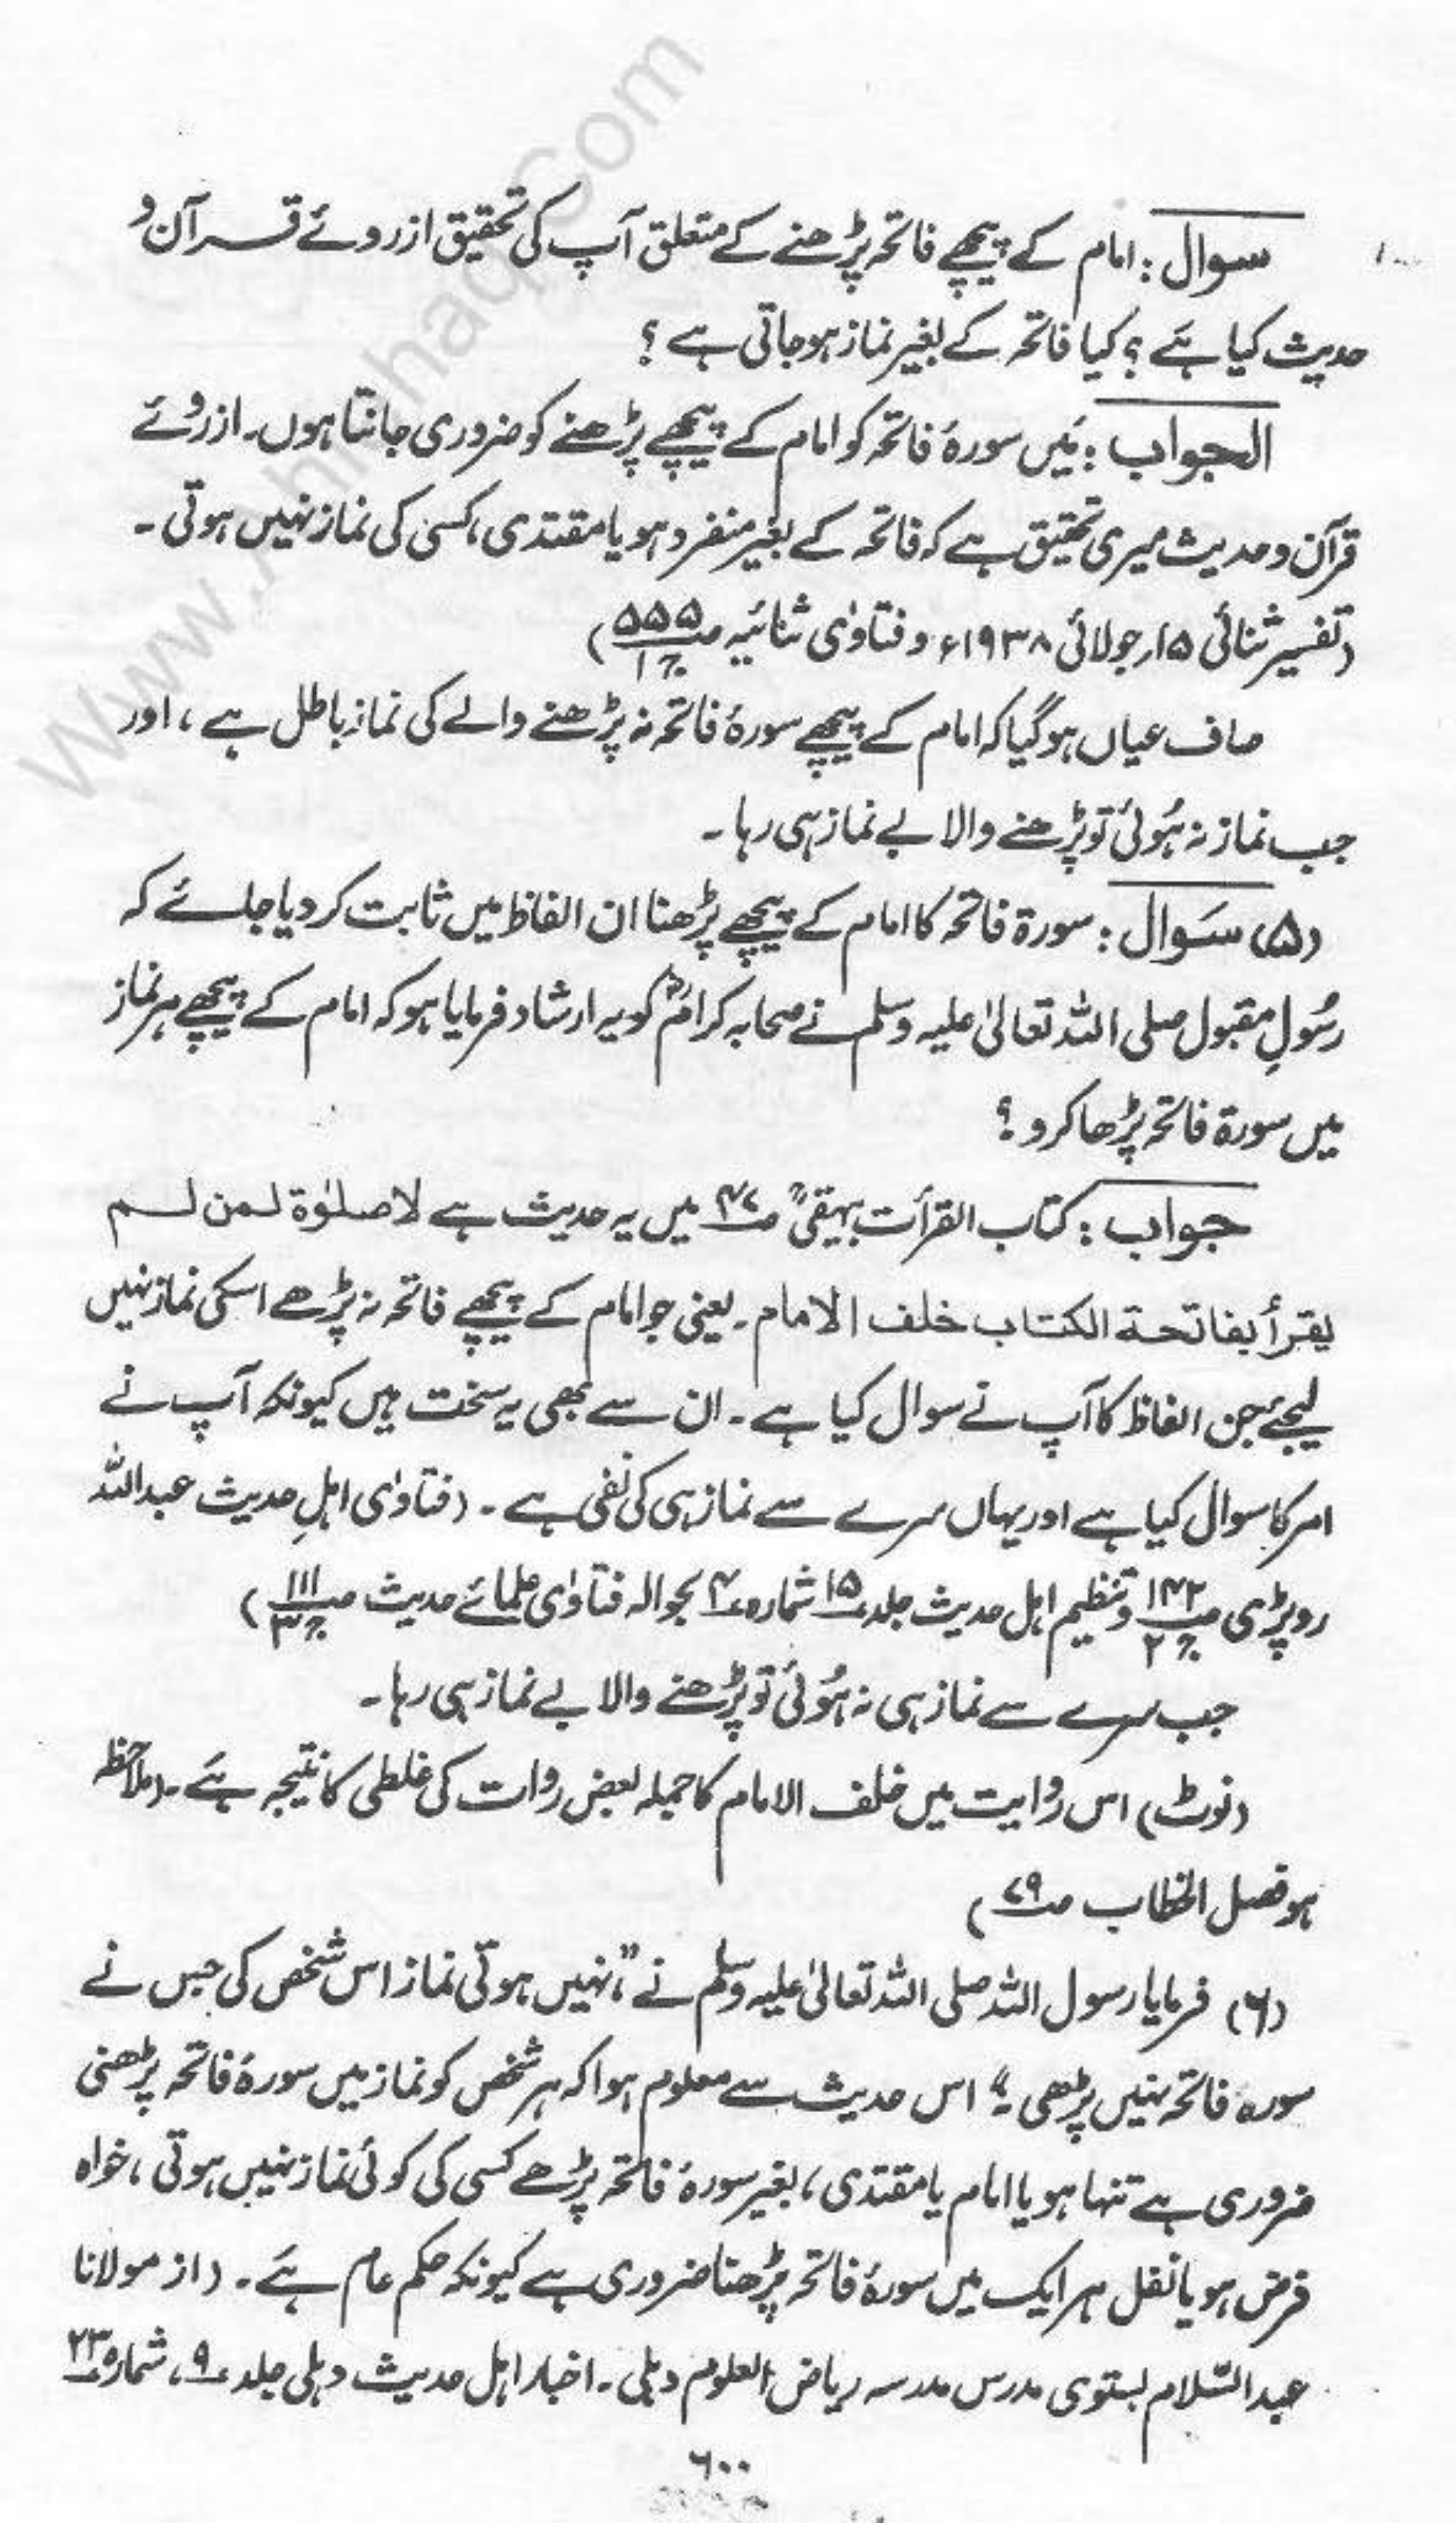 سوال : امام کے پیچھے فاتحہ پڑھنے کے متعلق آپ کی تحقیق ازروئے قرآن و
حدیث کیا ہے ؟ کیا فاتحہ کے بغیر نماز ہوجاتی ہے ؟
الجواب : میں سورۂ فاتحہ کو امام کے پیچھے پڑھنے کو ضروری جانتا ہوں۔ ازروئے
قرآن و حدیث میری تحقیق ہے کہ فاتحہ کے بغیر منفرد ہو یا مقتدی، کسی کی نماز نہیں ہوتی ۔
(تفسیر ثنائی ۱۵ر جولائی ۱۹۳۸ء و فتاوٰی ثنائیہ ص۵۵۵ ج۱)
صاف عیاں ہوگیا کہ امام کے پیچھے سورۂ فاتحہ نہ پڑھنے والے کی نماز باطل ہے ، اور
جب نماز نہ ہُوئی تو پڑھنے والا بے نماز ہی رہا ۔
(۵) سَوال : سورۃ فاتحہ کا امام کے پیچھے پڑھنا ان الفاظ میں ثابت کر دیا جائے کہ
رسُولِ مقبول صلی اللہ تعالیٰ علیہ وسلم نے صحابہ کرامؓ کو یہ ارشاد فرمایا ہو کہ امام کے پیچھے ہر نماز
میں سورۃ فاتحہ پڑھا کرو ؟
جواب : کتاب القرأت بیہقیؒ ص۴۷ میں یہ حدیث ہے لاصلوٰۃ لمن لم
یقرأ بفاتحۃ الکتاب خلف الامام۔ یعنی جو امام کے پیچھے فاتحہ نہ پڑھے اسکی نماز نہیں
لیجئے جن الفاظ کا آپ نے سوال کیا ہے ۔ ان سے بھی یہ سخت ہیں کیونکہ آپ نے
امر کا سوال کیا ہے اور یہاں سرے سے نماز ہی کی نفی ہے ۔ (فتاوٰی اہلِ حدیث عبداللہ
روپڑی ص۱۴۲ ج۲ و تنظیم اہل حدیث جلد ۱۵ شمارہ ۴ بحوالہ فتاوٰی علمائے حدیث ص۱۱۱ ج۳)
جب سرے سے نماز ہی نہ ہُوئی تو پڑھنے والا بے نماز ہی رہا ۔
(نوٹ) اس روایت میں خلف الامام کا جملہ بعض روات کی غلطی کا نتیجہ ہے ۔ (ملاحظہ
ہو فصل الخطاب ص۷۹)
(۶) فرمایا رسول اللہ صلی اللہ تعالیٰ علیہ وسلم نے ”نہیں ہوتی نماز اس شخص کی جس نے
سورہ فاتحہ نہیں پڑھی ۔“ اس حدیث سے معلوم ہوا کہ ہر شخص کو نماز میں سورۂ فاتحہ پڑھنی
ضروری ہے تنہا ہو یا امام یا مقتدی ، بغیر سورۂ فاتحہ پڑھے کسی کی کوئی نماز نہیں ہوتی ، خواہ
فرض ہو یا نفل ہر ایک میں سورۂ فاتحہ پڑھنا ضروری ہے کیونکہ حکم عام ہے ۔ (از مولانا
عبدالسّلام بستوی مدرس مدرسہ ریاض العلوم دہلی ۔ اخبار اہل حدیث دہلی جلد ۹، شمارہ ۲۳
۶۰۰